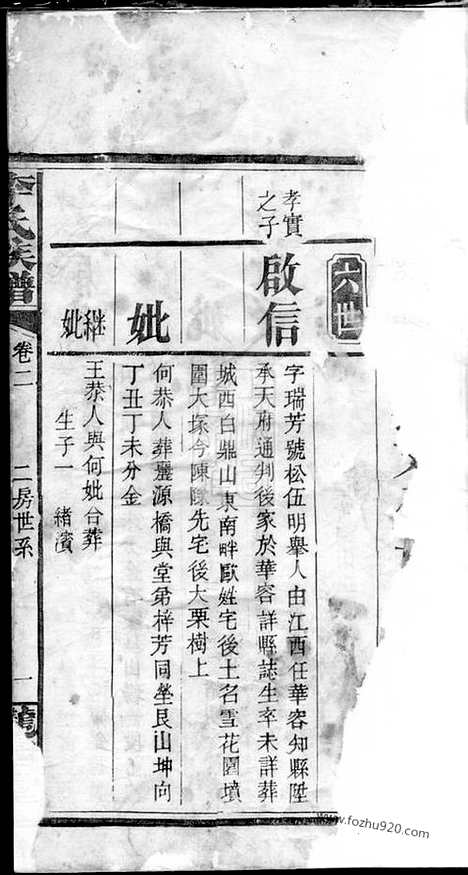 六世
孝實之子
啟信
字瑞芳號松伍明舉人由江西任華容知縣陞
承天府通判後家於華容詳縣誌生卒未詳葬
城西白鼎山東南畔歐姓宅後土名雪花園墳
園大塚今陳隊先宅後大栗樹上
妣
何恭人葬礨源橋與堂弟梓芳同塋艮山坤向
丁丑丁未分金
繼妣
王恭人與何妣合葬
生子一 緒濱
氏族譜
卷二
二房世系
一
www.fozhu920.com